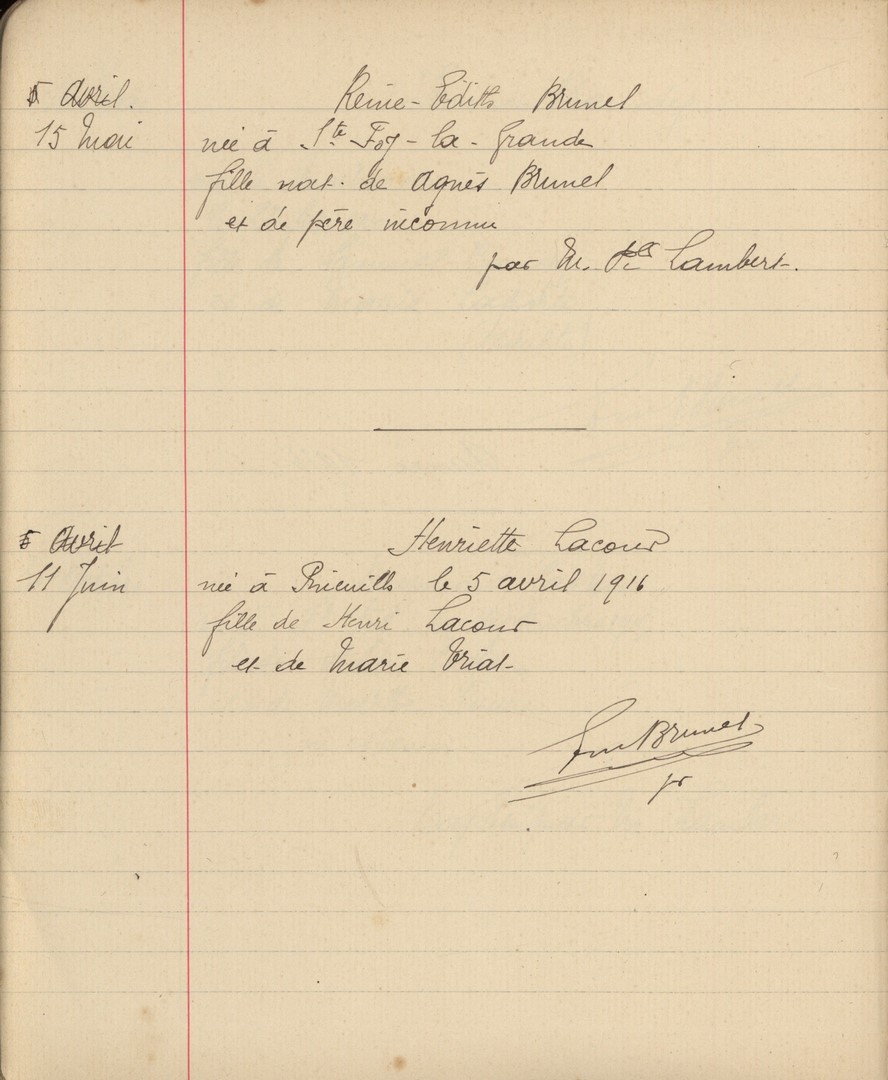 5 Avril.
Reine-Edith Brunel
15 Mai
née à Ste Foy-la-Grande
fille nat. de Agnès Brunel
et de père inconnu
par M. Lambert.
5 Avril
Henriette Lacour
11 Juin
née à le 5 avril 1916
fille de Henri Lacour
et de Marie Triat
Brunel
pr